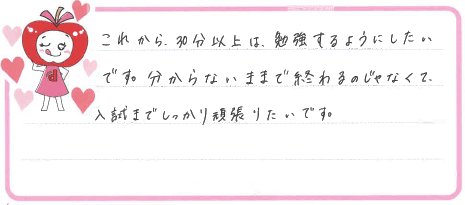 これから、30分以上は、勉強するようにしたい
です。分からないままで終わるのじゃなくて、
入試までしっかり頑張りたいです。